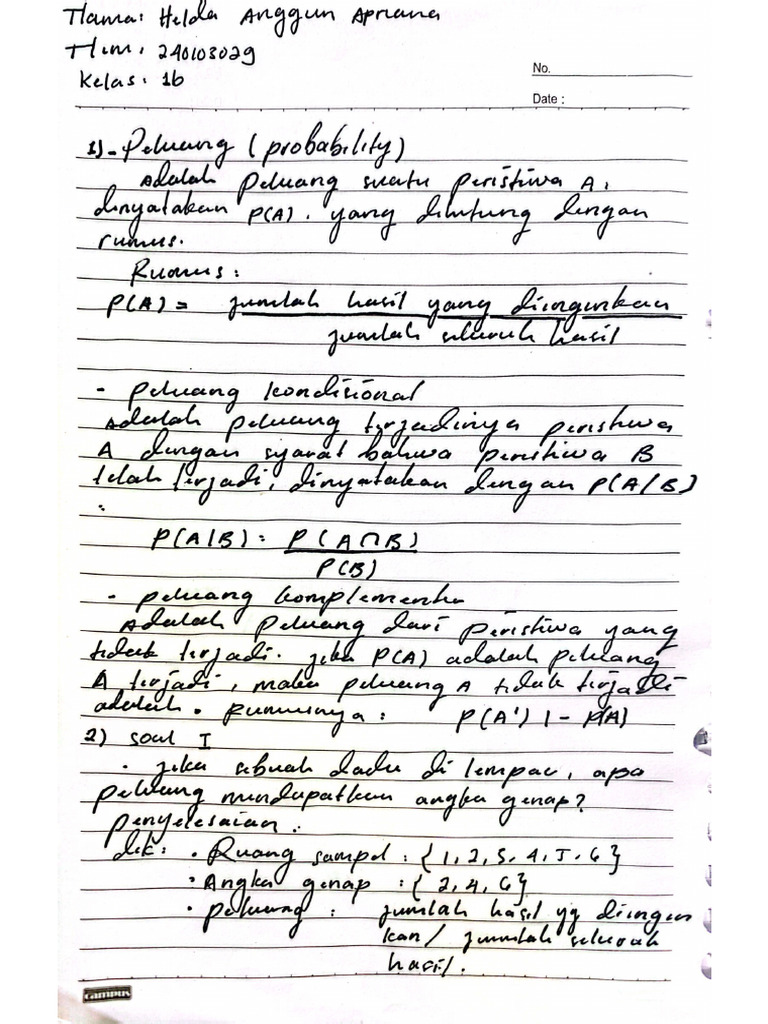 Nama: Helda Anggun Apriana
Nim: 240103029
Kelas: 1b
No.
Date :
1) - Peluang (probability)
Adalah peluang suatu peristiwa A,
dinyatakan P(A). yang dihitung dengan
rumus.
Rumus:
P(A) = jumlah hasil yang diinginkan
jumlah seluruh hasil
- peluang kondisional
Adalah peluang terjadinya peristiwa
A dengan syarat bahwa peristiwa B
telah terjadi, dinyatakan dengan P(A/B)
:
P(A|B) : P(A∩B)
P(B)
- peluang komplementer
Adalah peluang dari peristiwa yang
tidak terjadi. jika P(A) adalah peluang
A terjadi, maka peluang A tidak terjadi
adalah. Rumusnya : P(A') 1 - P(A)
2) soal I
. jika sebuah dadu di lempar, apa
peluang mendapatkan angka genap?
penyelesaian :
dik: • Ruang sampel : {1, 2, 3, 4, 5, 6}
• Angka genap : {2, 4, 6}
• peluang : jumlah hasil yg diingin
kan/ jumlah seluruh
hasil.
campus